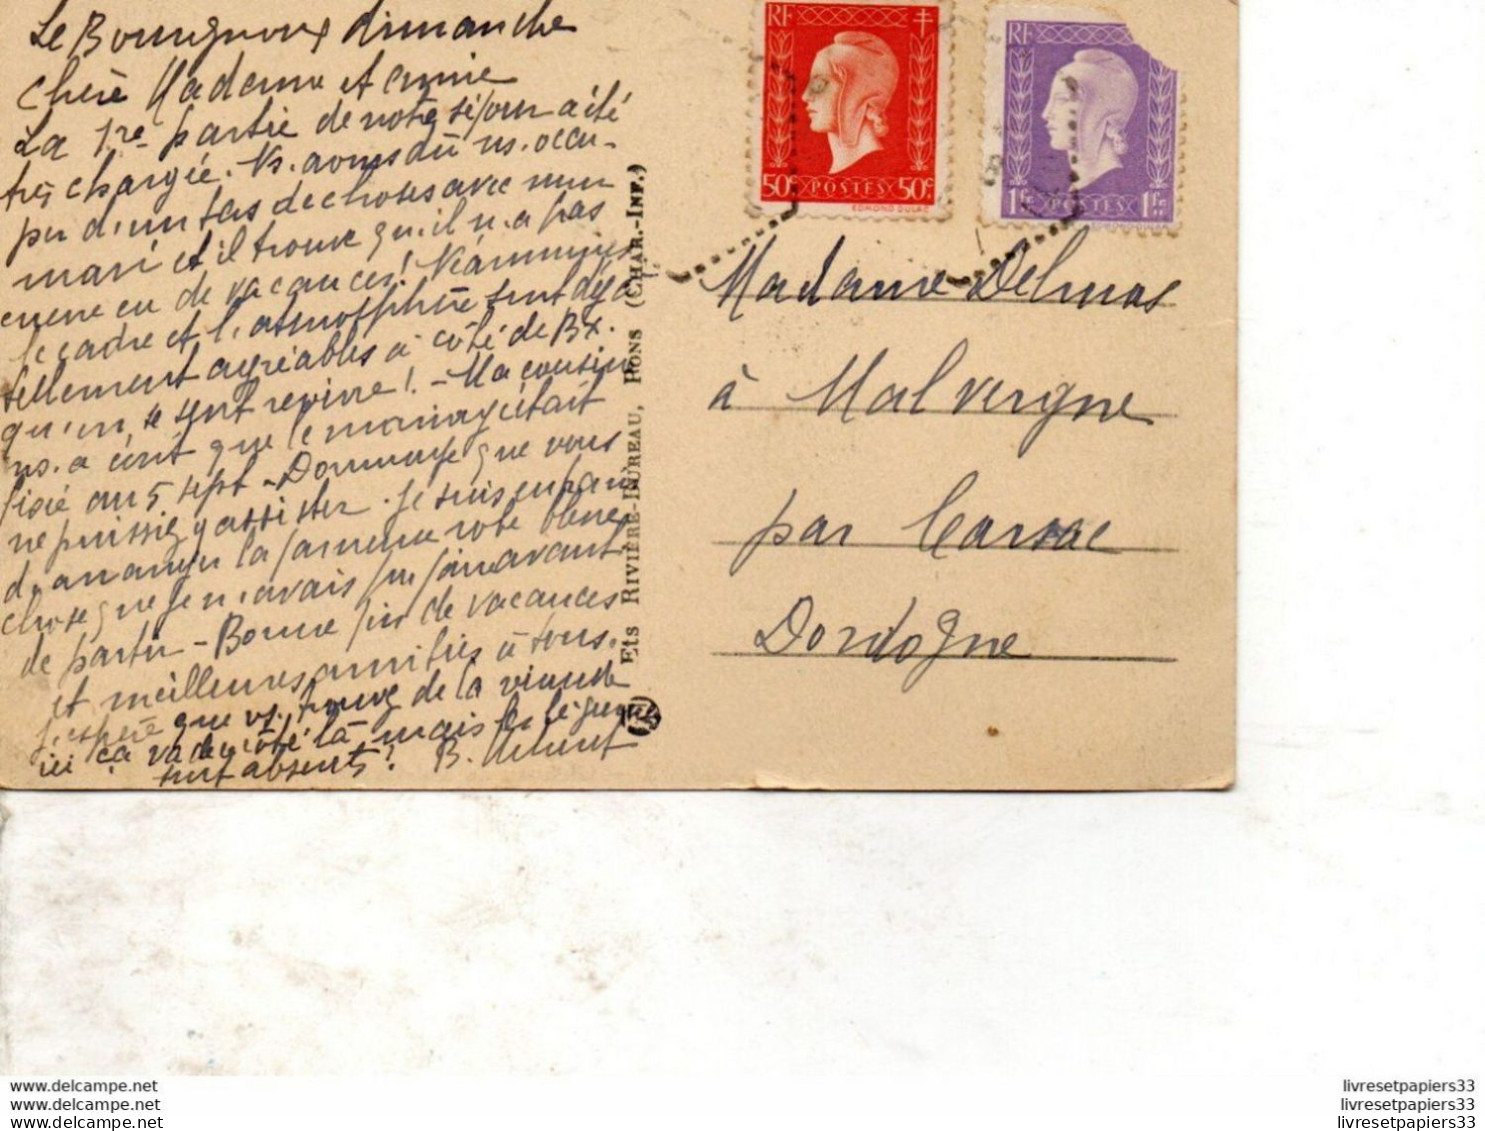 Le Bourgnoux dimanche
Chère Madame et amie
La 1re partie de notre séjour a été
très chargée. Ns. avons dû ns. occu-
per d'un tas de choses avec mon
mari et il trouve qu'il n'a pas
encore eu de vacances! Néanmoins
le cadre et l'atmosphère sont déjà
tellement agréables à côté de Bx.
qu'on se sent revivre! - Ma cousine
ns. a écrit que le mariage était
fixé au 5 sept - Dommage que vous
ne puissiez y assister. Je suis en train
d'arranger la fameuse robe bleue
chose que je n'avais pu faire avant
de partir - Bonne fin de vacances
et meilleures amitiés à tous.
J'espère que vs. trouvez de la viande
ici ça va de ce côté là mais les légumes
sont absents! B.
Ets RIVIÈRE-BUREAU, PONS (CHAR.-INF.)
RF
50c POSTES 50c
EDMOND DULAC
RF
1Fr POSTES 1Fr
EDMOND DULAC
Madame Delmas
à Malvergne
par Carsac
Dordogne
www.delcampe.net
www.delcampe.net
www.delcampe.net
livresetpapiers33
livresetpapiers33
livresetpapiers33